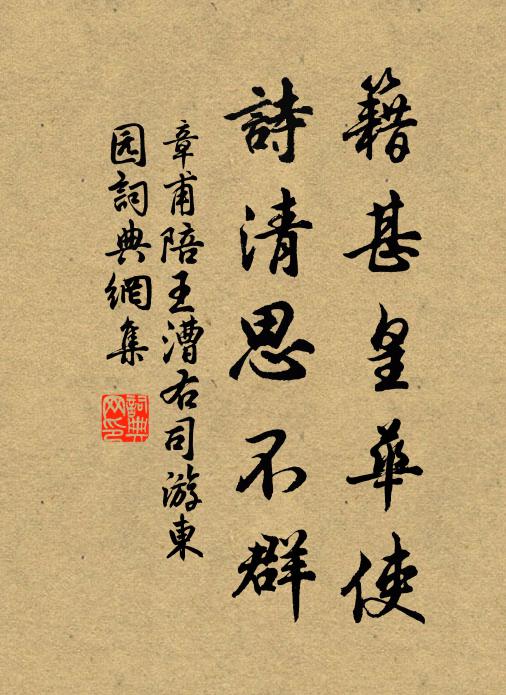 籍甚皇華使
詩清思不群
章甫陪王漕右司游東
园詞典網集
詞典
网印